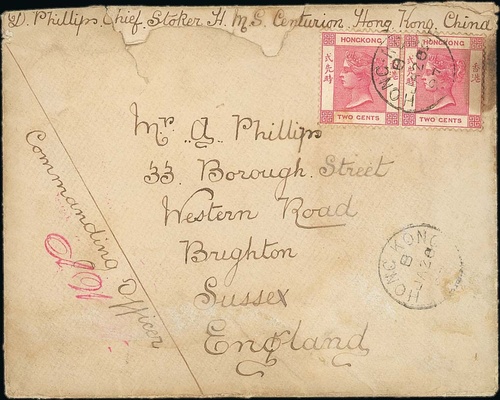 D. Phillips, Chief. Stoker H. M. S. Centurion. Hong Kong, China
HONGKONG
TWO CENTS
HONGKONG
香港
TWO CENTS
HONG KONG
B
28
Mr A Phillips
33 Borough. Street
Western Road
Brighton
Sussex
England
Commanding Officer
HONG KONG
B
28